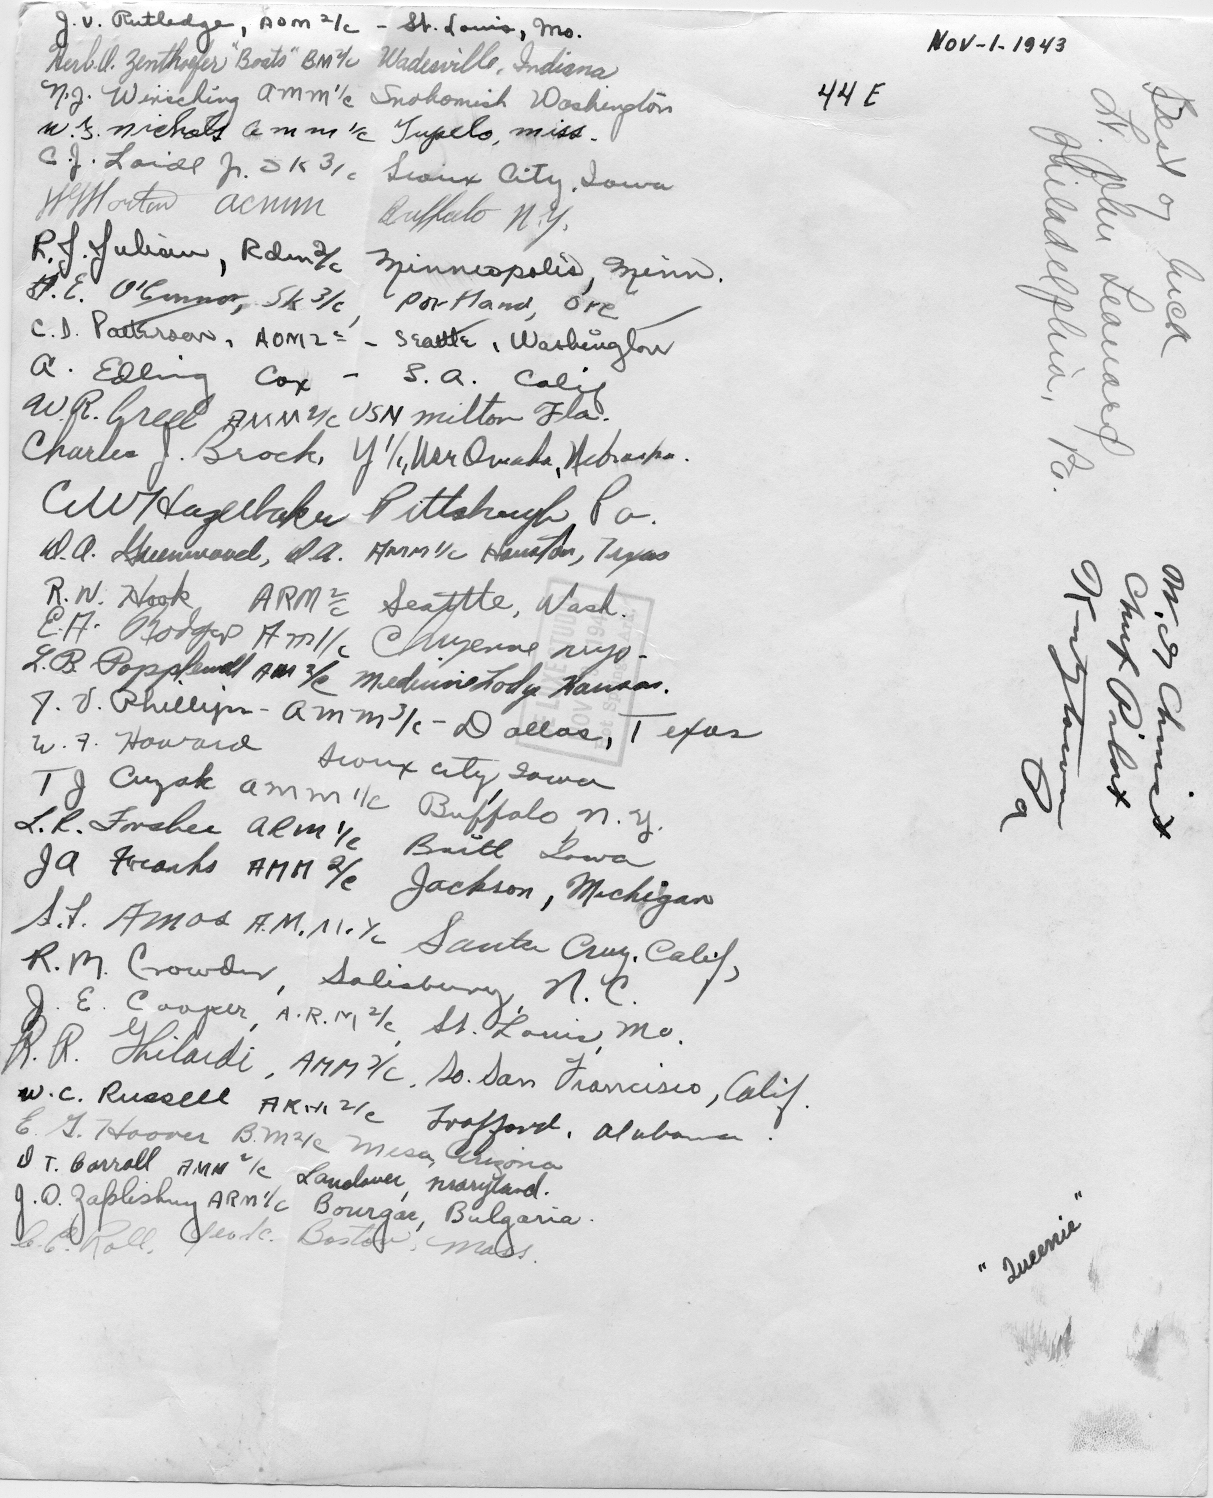 J. V. Rutledge, AOM 2/c - St. Louis, Mo.
Herb. A. Zenthoefer "Boats" BM 2/c Wadesville, Indiana
N. J. Wirsching AMM 1/c Snohomish Washington
W. G. Nichols AMM 1/c Tupelo, Miss.
C. J. Jr. SK 3/c Sioux City, Iowa
Morton ACMM Buffalo N.Y.
R. J. Julian, Rdm 2/c Minneapolis, Minn.
H. E. O'Connor, SK 3/c, Portland, Ore
C. D. Patterson, AOM 2 = - Seattle, Washington
A. Edling Cox - S. A. Calif
W. R. Greel AMM 2/c USN Milton Fla.
Charles J. Brock, Y 1/c, USNR Omaha, Nebraska.
C W Hazelbaker Pittsburgh Pa.
D. A. Greenwood, D. A. AMM 1/c Houston, Texas
R. N. Hook ARM 2/c Seattle, Wash.
E. A. Rodger AM 1/c Cheyenne Wyo-
L. B. Popplewell AM 3/c Medicine Lodge Kansas.
J. V. Phillips - AMM 3/c - Dallas, Texas
W. F. Howard Sioux City, Iowa
T J Cuzak AMM 1/c Buffalo N. Y.
L. R. Forsbee ARM 1/c Britt Iowa
J A Franks AMM 2/c Jackson, Michigan
S. F. Amos A.M.M. 1/c Santa Cruz, Calif,
R. M. Crowder, Salisbury, N. C.
J. E. Cooper, A.R.M. 2/c, St. Louis, Mo.
R. R. Ghilardi, AMM 2/c, So. San Francisco, Calif.
W. C. Russell ARM 2/c Trafford, Alabama.
E. G. Hoover B.M 2/c Mesa, Arizona
D T. Carroll AMM 2/c Landover, Maryland.
J. D. ARM 1/c Bourgas, Bulgaria.
C. C. Roll, Boston, Mass.
NOV-1-1943
44 E
Best of luck
Lt. John Leonard
Philadelphia, Pa.
Chief Pilot
Pa
"Queenie"